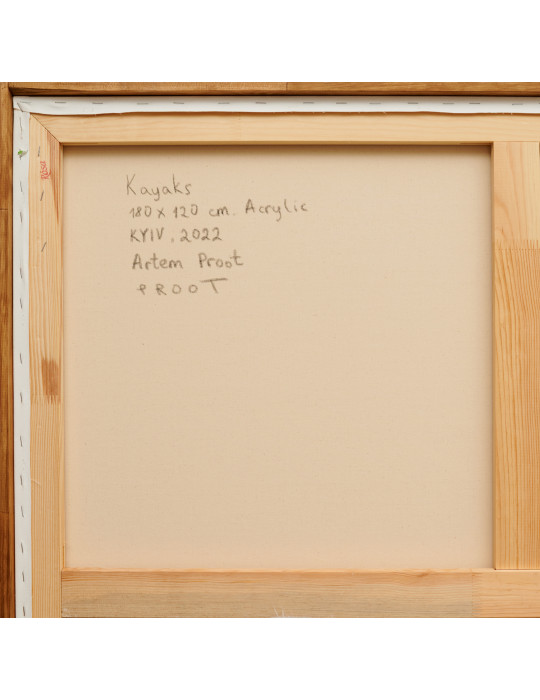 Kayaks
180 x 120 cm. Acrylic
KYIV, 2022
Artem Proot
PROOT